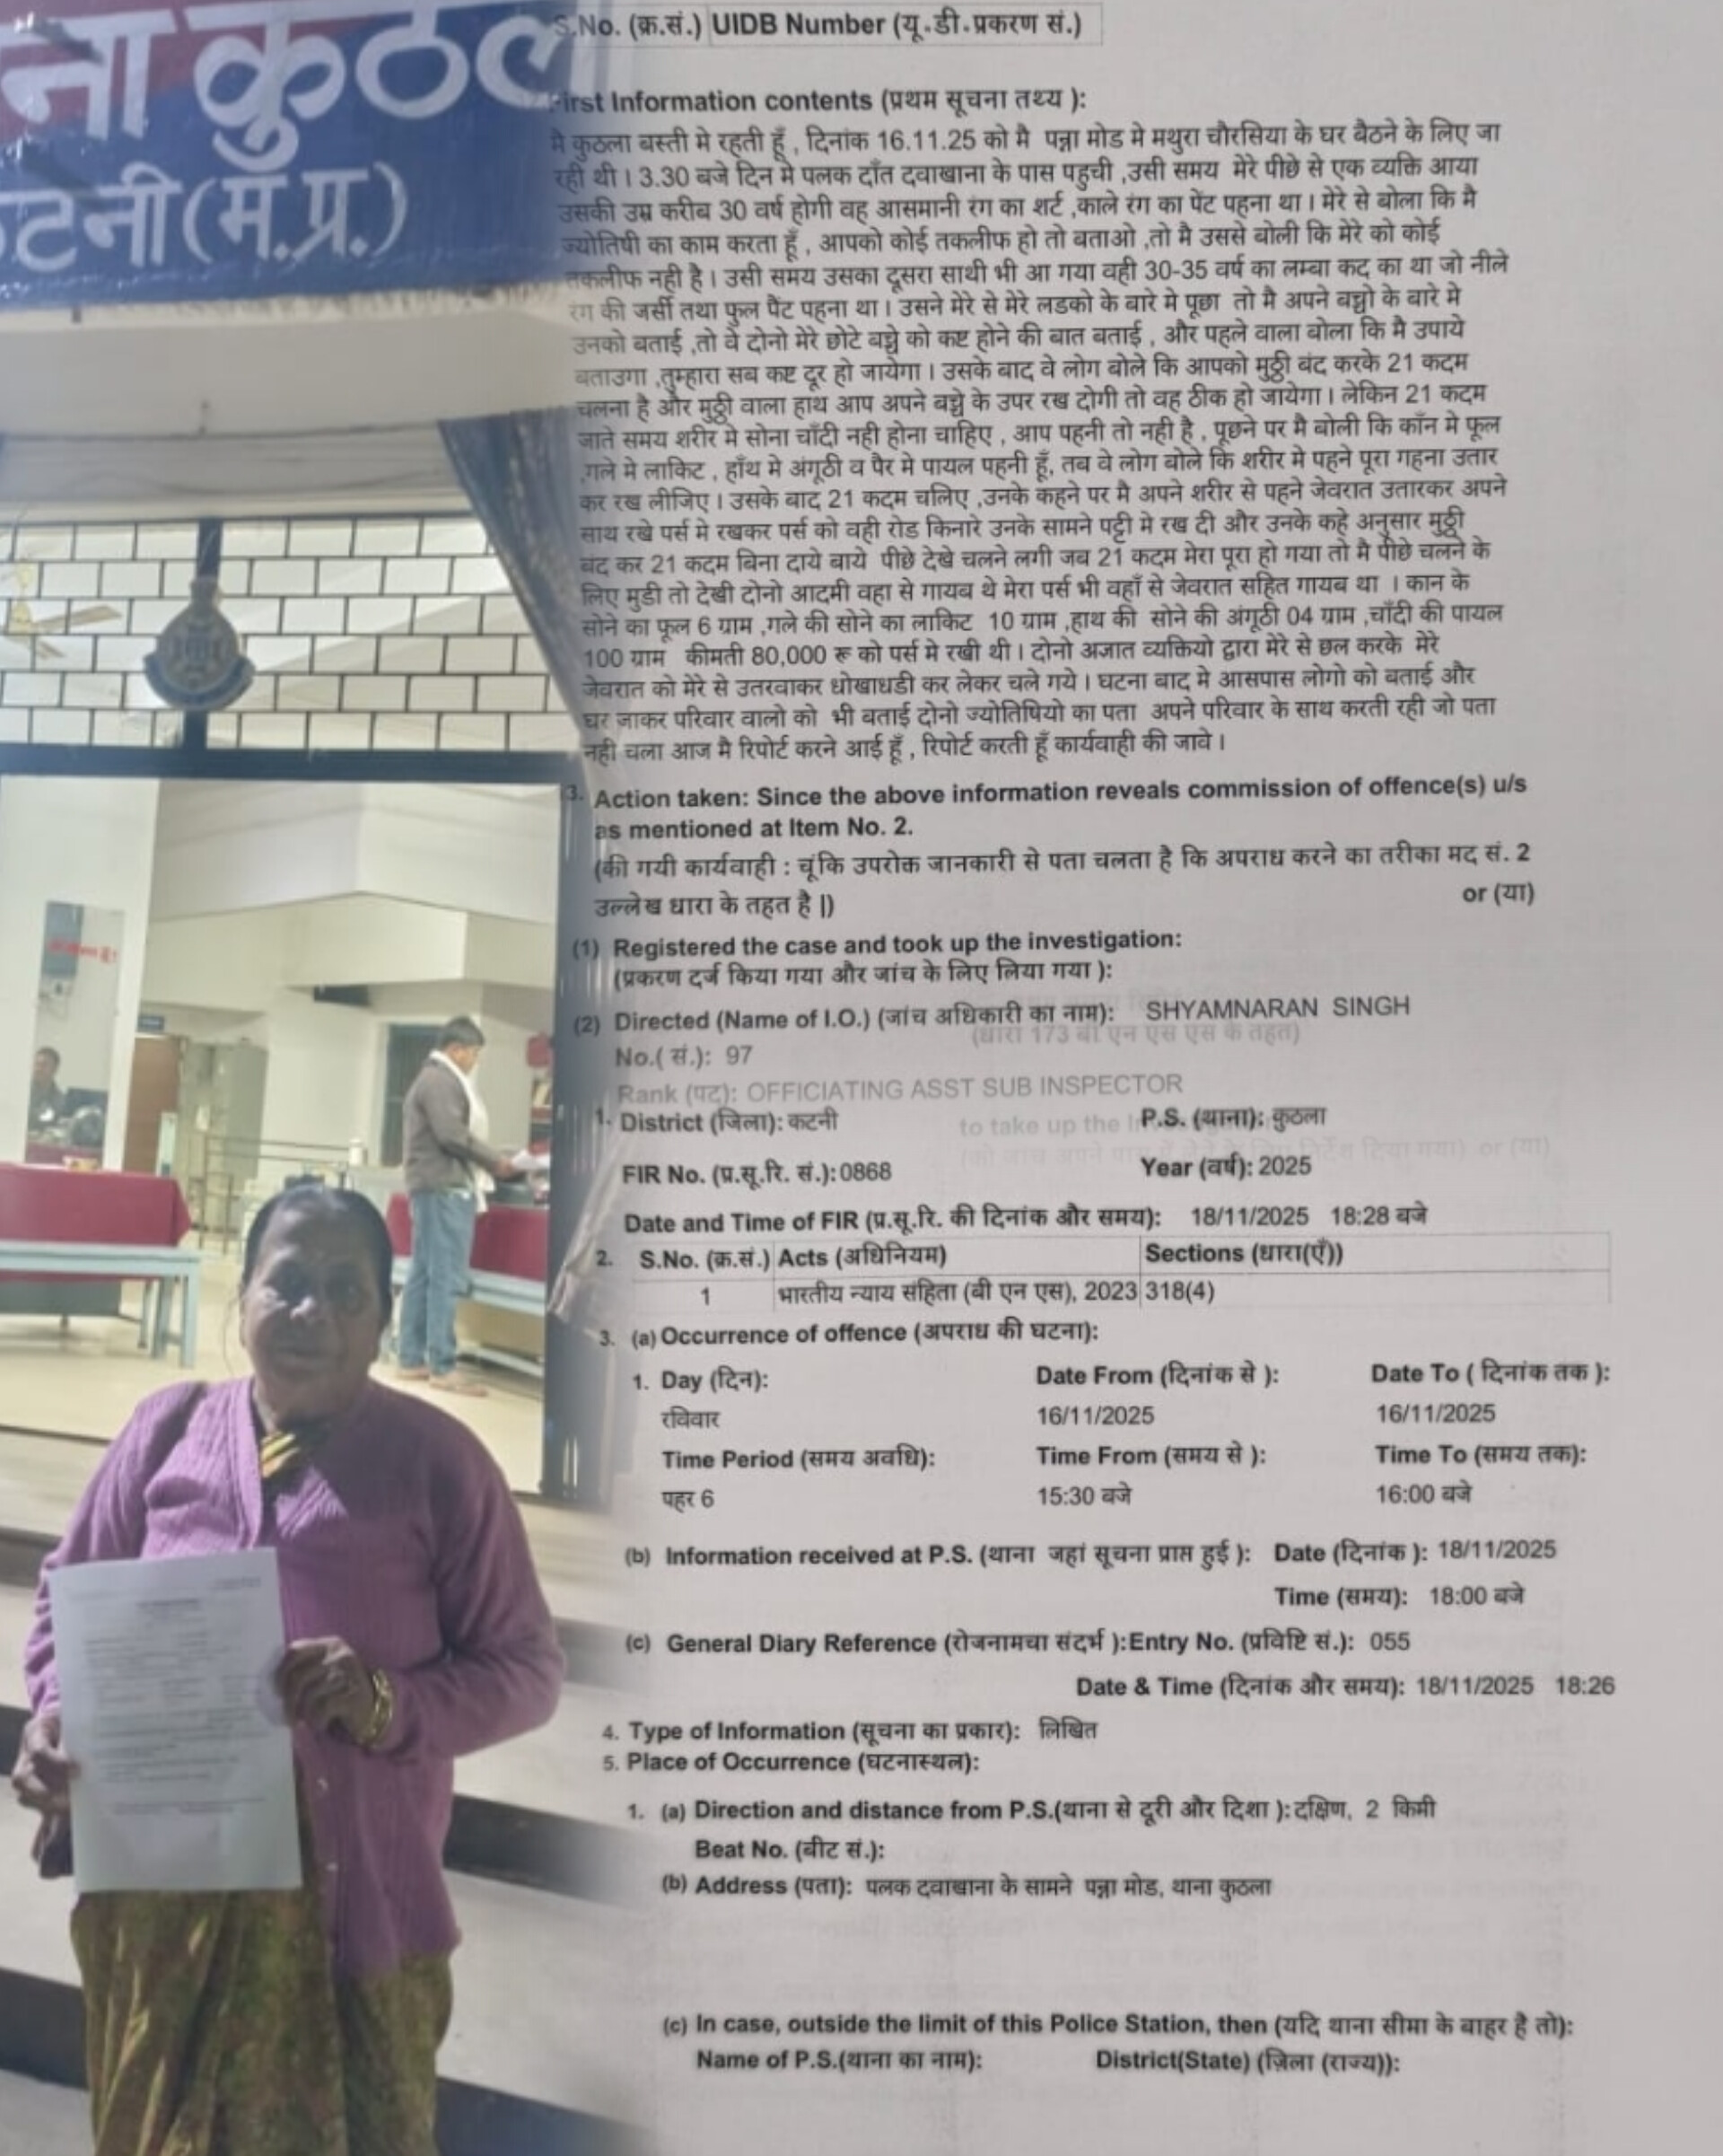 ना कुठल
टनी(म.प्र.)
S.No. (क्र.सं.) UIDB Number (यू.डी.प्रकरण सं.)
First Information contents (प्रथम सूचना तथ्य ):
मै कुठला बस्ती मे रहती हूँ , दिनांक 16.11.25 को मै पन्ना मोड मे मथुरा चौरसिया के घर बैठने के लिए जा
रही थी । 3.30 बजे दिन मे पलक दाँत दवाखाना के पास पहुची ,उसी समय मेरे पीछे से एक व्यक्ति आया
उसकी उम्र करीब 30 वर्ष होगी वह आसमानी रंग का शर्ट ,काले रंग का पेंट पहना था । मेरे से बोला कि मै
ज्योतिषी का काम करता हूँ , आपको कोई तकलीफ हो तो बताओ ,तो मै उससे बोली कि मेरे को कोई
तकलीफ नही है । उसी समय उसका दूसरा साथी भी आ गया वही 30-35 वर्ष का लम्बा कद का था जो नीले
रंग की जर्सी तथा फुल पैंट पहना था । उसने मेरे से मेरे लडको के बारे मे पूछा तो मै अपने बच्चो के बारे मे
उनको बताई ,तो वे दोनो मेरे छोटे बच्चे को कष्ट होने की बात बताई , और पहले वाला बोला कि मै उपाये
बताउगा ,तुम्हारा सब कष्ट दूर हो जायेगा । उसके बाद वे लोग बोले कि आपको मुठ्ठी बंद करके 21 कदम
चलना है और मुठ्ठी वाला हाथ आप अपने बच्चे के उपर रख दोगी तो वह ठीक हो जायेगा । लेकिन 21 कदम
जाते समय शरीर मे सोना चाँदी नही होना चाहिए , आप पहनी तो नही है , पूछने पर मै बोली कि कॉन मे फूल
,गले मे लाकिट , हाँथ मे अंगूठी व पैर मे पायल पहनी हूँ, तब वे लोग बोले कि शरीर मे पहने पूरा गहना उतार
कर रख लीजिए । उसके बाद 21 कदम चलिए ,उनके कहने पर मै अपने शरीर से पहने जेवरात उतारकर अपने
साथ रखे पर्स मे रखकर पर्स को वही रोड किनारे उनके सामने पट्टी मे रख दी और उनके कहे अनुसार मुठ्ठी
बंद कर 21 कदम बिना दाये बाये पीछे देखे चलने लगी जब 21 कदम मेरा पूरा हो गया तो मै पीछे चलने के
लिए मुडी तो देखी दोनो आदमी वहा से गायब थे मेरा पर्स भी वहाँ से जेवरात सहित गायब था । कान के
सोने का फूल 6 ग्राम ,गले की सोने का लाकिट 10 ग्राम ,हाथ की सोने की अंगूठी 04 ग्राम ,चाँदी की पायल
100 ग्राम कीमती 80,000 रू को पर्स मे रखी थी । दोनो अज्ञात व्यक्तियो द्वारा मेरे से छल करके मेरे
जेवरात को मेरे से उतरवाकर धोखाधडी कर लेकर चले गये । घटना बाद मे आसपास लोगो को बताई और
घर जाकर परिवार वालो को भी बताई दोनो ज्योतिषियो का पता अपने परिवार के साथ करती रही जो पता
नही चला आज मै रिपोर्ट करने आई हूँ , रिपोर्ट करती हूँ कार्यवाही की जावे ।
3. Action taken: Since the above information reveals commission of offence(s) u/s
as mentioned at Item No. 2.
(की गयी कार्यवाही : चूंकि उपरोक्त जानकारी से पता चलता है कि अपराध करने का तरीका मद सं. 2
उल्लेख धारा के तहत है |) or (या)
(1) Registered the case and took up the investigation:
(प्रकरण दर्ज किया गया और जांच के लिए लिया गया ):
(2) Directed (Name of I.O.) (जांच अधिकारी का नाम): SHYAMNARAN SINGH
(धारा 173 बी एन एस एस के तहत)
No.( सं.): 97
Rank (पद): OFFICIATING ASST SUB INSPECTOR
to take up the
1. District (जिला): कटनी P.S. (थाना): कुठला
FIR No. (प्र.सू.रि. सं.): 0868 Year (वर्ष): 2025
Date and Time of FIR (प्र.सू.रि. की दिनांक और समय): 18/11/2025 18:28 बजे
2. S.No. (क्र.सं.) Acts (अधिनियम) Sections (धारा(एँ))
1 भारतीय न्याय संहिता (बी एन एस), 2023 318(4)
3. (a) Occurrence of offence (अपराध की घटना):
1. Day (दिन): Date From (दिनांक से ): Date To ( दिनांक तक ):
रविवार 16/11/2025 16/11/2025
Time Period (समय अवधि): Time From (समय से ): Time To (समय तक):
पहर 6 15:30 बजे 16:00 बजे
(b) Information received at P.S. (थाना जहां सूचना प्राप्त हुई ): Date (दिनांक ): 18/11/2025
Time (समय): 18:00 बजे
(c) General Diary Reference (रोजनामचा संदर्भ ):Entry No. (प्रविष्टि सं.): 055
Date & Time (दिनांक और समय): 18/11/2025 18:26
4. Type of Information (सूचना का प्रकार): लिखित
5. Place of Occurrence (घटनास्थल):
1. (a) Direction and distance from P.S.(थाना से दूरी और दिशा ): दक्षिण, 2 किमी
Beat No. (बीट सं.):
(b) Address (पता): पलक दवाखाना के सामने पन्ना मोड, थाना कुठला
(c) In case, outside the limit of this Police Station, then (यदि थाना सीमा के बाहर है तो):
Name of P.S.(थाना का नाम): District(State) (ज़िला (राज्य)):